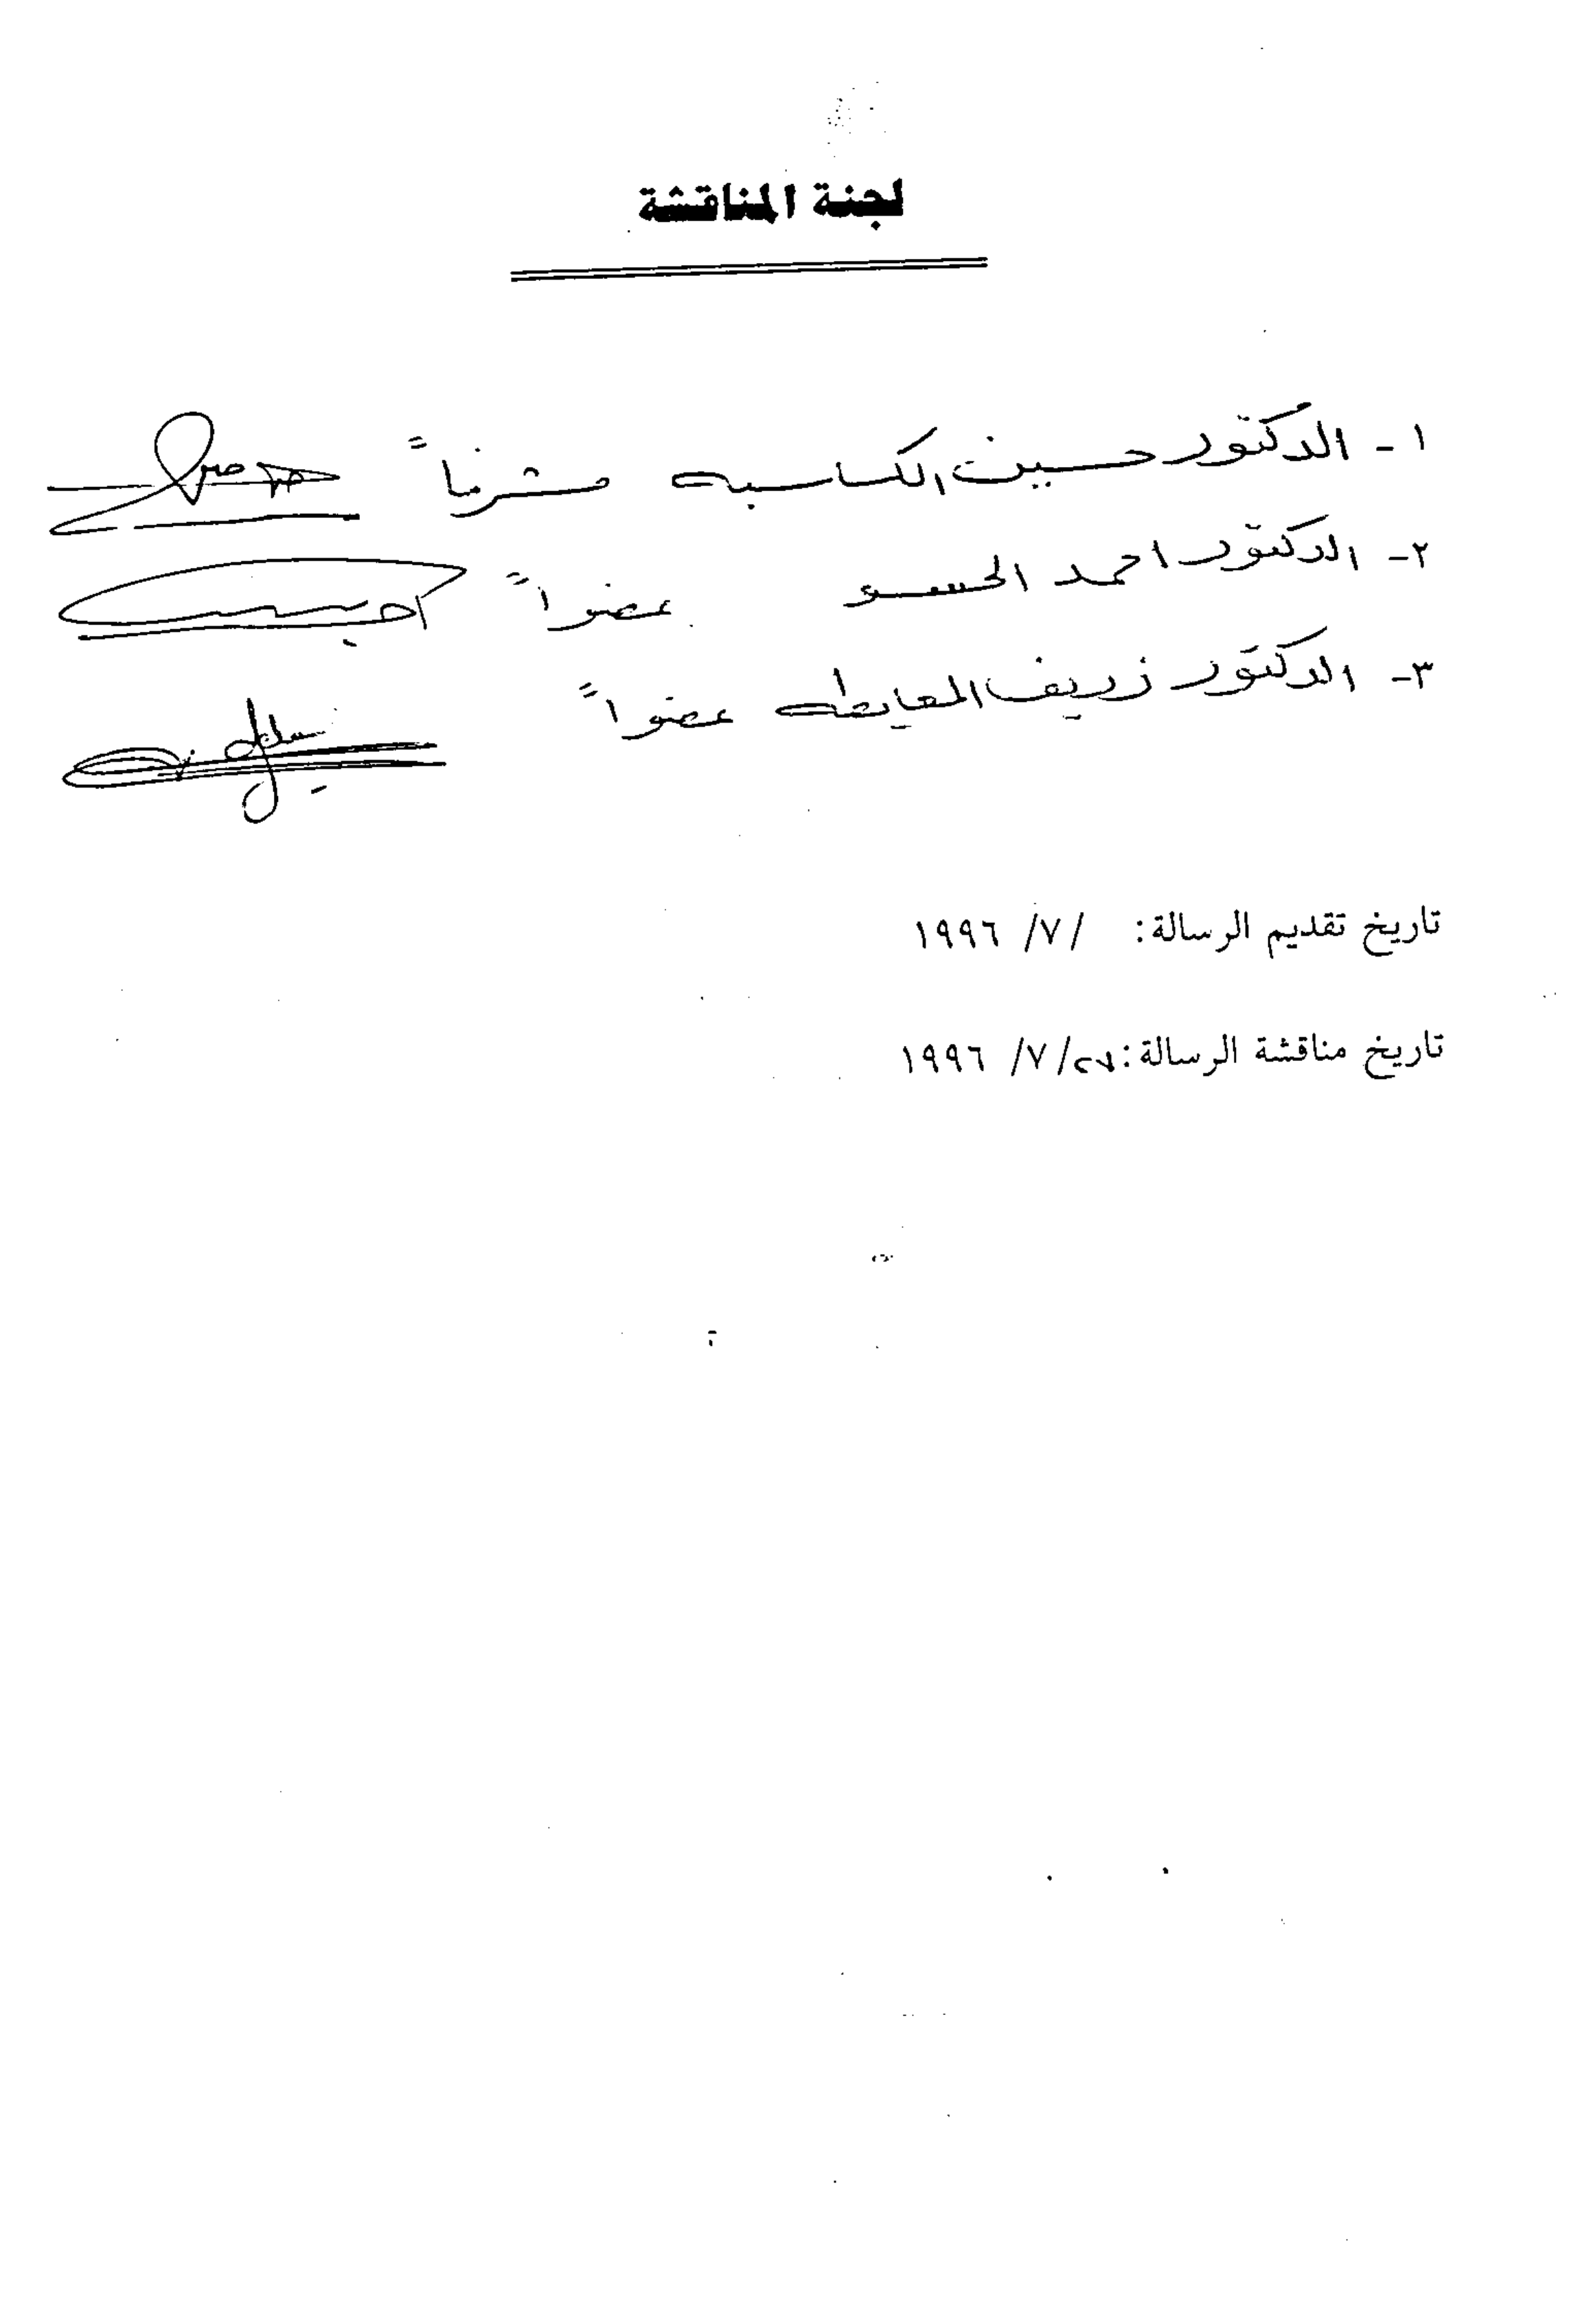 لجنة المناقشة
١- الدكتور حسين الكساسبه مشرفاً
٢- الدكتور احمد الحسو عضواً
٣- الدكتور زريف المعايطه عضواً
تاريخ تقديم الرسالة: / ٧/ ١٩٩٦
تاريخ مناقشة الرسالة: ٢٧/ ٧/ ١٩٩٦